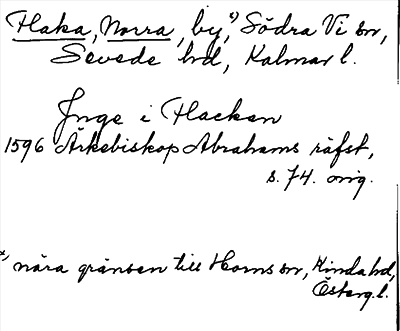 Haka, Norra, by,*) Södra Vi sn,
Sevede hd, Kalmar l.
Inge i Hacken
1596 Ärkebiskop Abrahams räfst,
s. 74. orig.
*) nära gränsen till Horns sn, Kinda hd,
Österg. l.